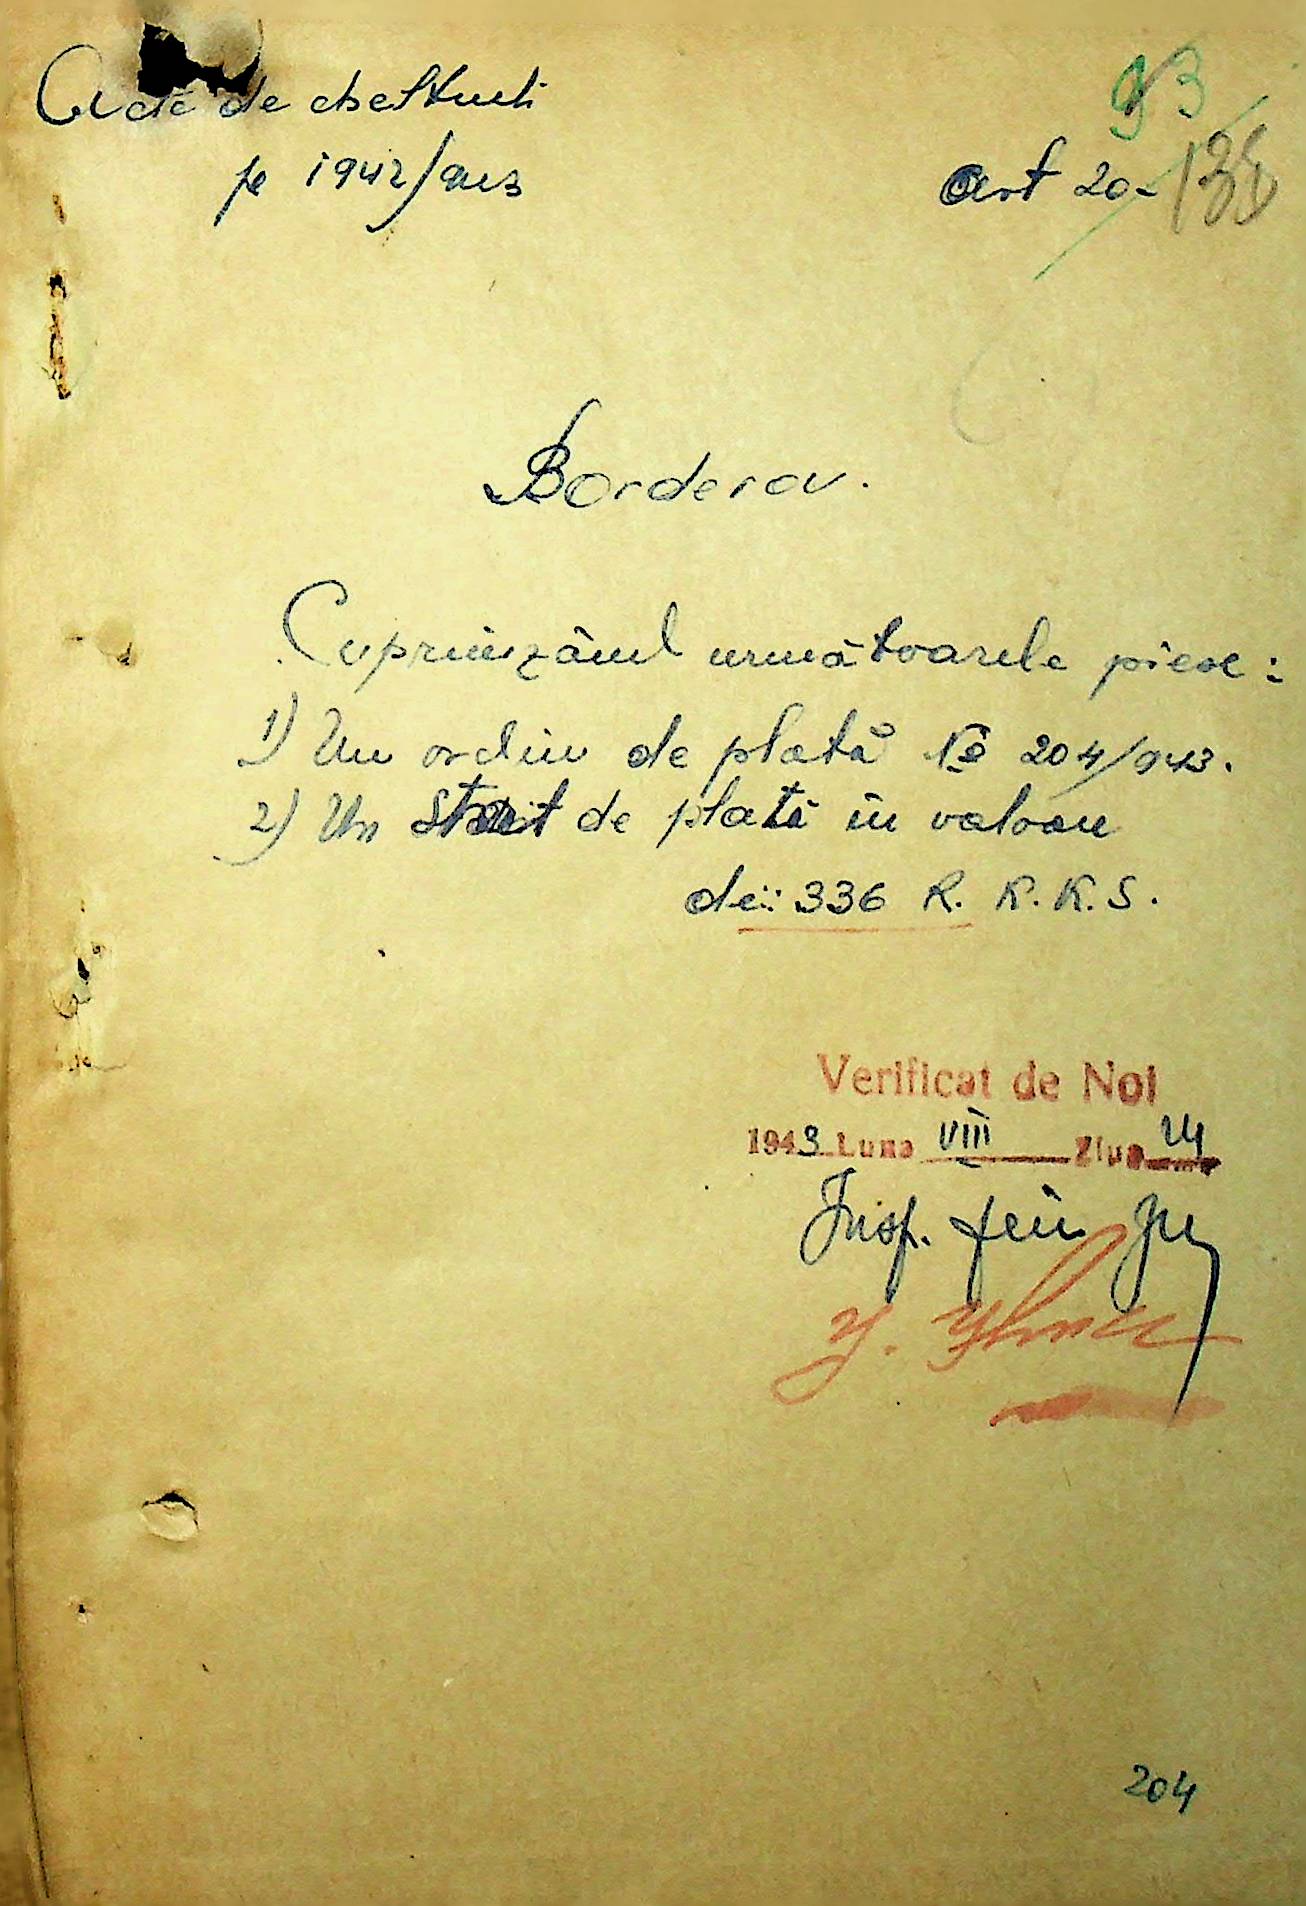 Acte de cheltueli
pe 1942/943
93
Art 20-
Borderou.
Cuprinzând următoarele piese:
1) Un ordin de plată № 204/943.
2) Un Stat de plată în valoare
de: 336 R. K. K. S.
Verificat de Noi
1943 Luna VIII Ziua 24
Insp. fin
204